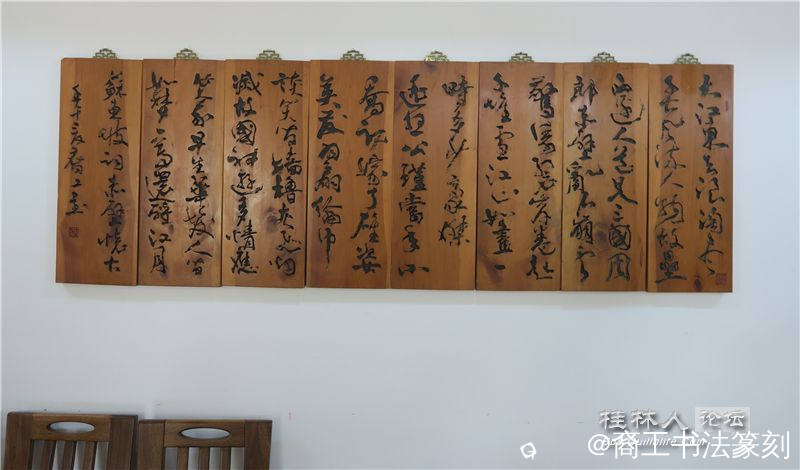 大江東去浪淘盡
千古風流人物故壘
西邊人道是三國周
郎赤壁亂石崩雲
驚濤裂岸卷起
千堆雪江山如畫一
時多少豪傑
遙想公瑾當年小
喬初嫁了雄姿
英發羽扇綸巾
談笑間檣櫓灰飛烟
滅故國神遊多情應
笑我早生華髮人間
如夢一尊還酹江月
蘇東坡詞赤壁懷古
桂林人论坛
@商工书法篆刻